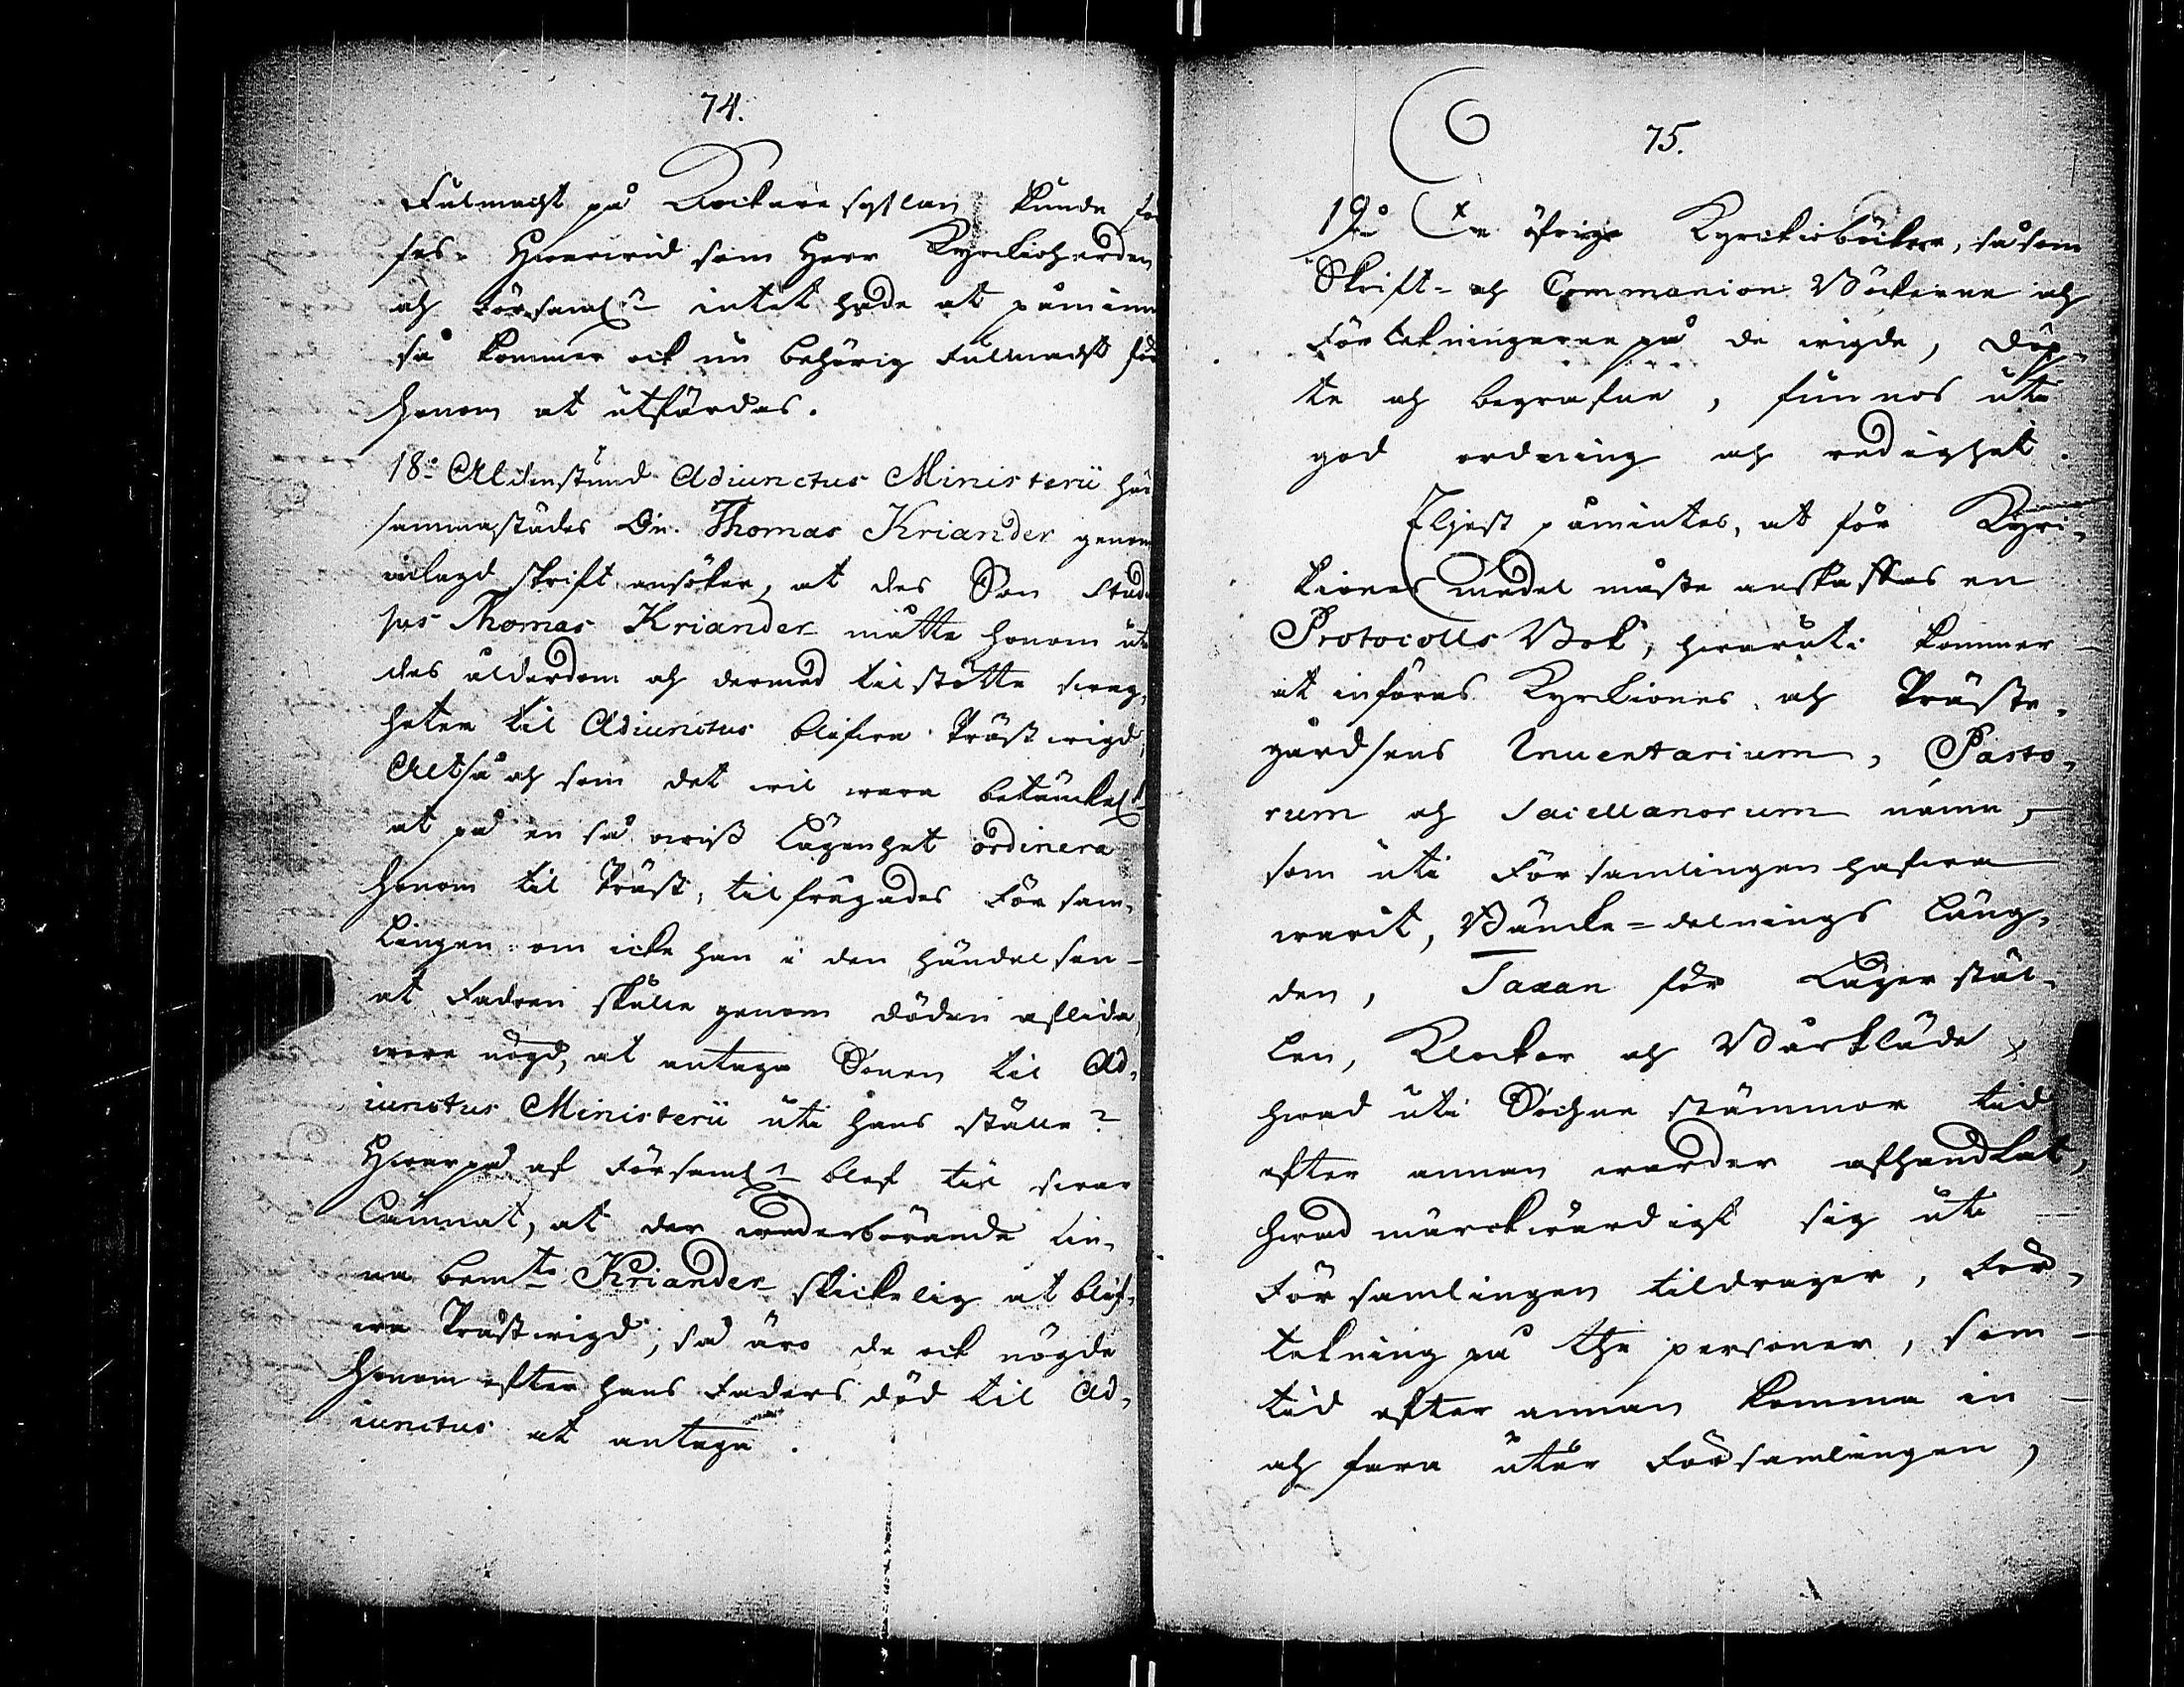 74.
Fulmacht på Klockare syslan kunde få
fås. Hwarwid som Herr Kyrckioherden
och Församl:n intet hade at påminna
så kommer ock nu behörig Fulmacht för
honom at utfärdas.
18:o Aldenstund Adiunctus Ministerii här
sammastädes Dn. Thomas Kriander genom
inlagd skrift ansöker, at des Son Studi
sus Thomas Kriander måtte honom uti
des ålderdom och dermed tilstötte swag-
heten til Adiunctus blifwa Präst wigd,
Altså och som det wil wara betänckel:t
at på en så owiss Lägenhet ordinera
honom til Präst, tilfrågades Försam-
lingen: om icke han i den händelsen
at Fadren skulle genom döden aflida,
wore nögd, at antaga Sonen til Ad-
iunctus Ministerii uti hans ställe?
Hwarpå af Församl:n blef til swar
Lämnat, at der wederbörande fin-
na bem:te Kriander skickelig at blif-
wa Prästwigd, så äro de ock nögde
honom efter hans Faders död til Ad-
iunctus at antaga.
75.
19:o De öfrige Kyrckioböcker, såsom
Skrift- och Communion Böckerne och
Förtekningarne på de wigde, döp-
te och begrafne, funnos uti
god ordning och redighet.
Eljest påmintes, at för Kyrc-
kiones medel måste anskaffas en
Protocolls Bok, hwaruti kommer
at införas Kyrckiones och Präste-
gårdsens Inventarium, Pasto-
rum och Sacellanorum namn,
som uti Församlingen hafwa
warit, Bäncke-delnings läng-
den, Taxan för Lägerstäl-
len, Klockor och Bårkläde
hwad uti Sochne stämmor tid
efter annan warder afhandlat,
hwad märckwärdigt sig uti
Församlingen tildrager, För-
tekning på the personer, som
tid efter annan komma in
och fara utur Församlingen,